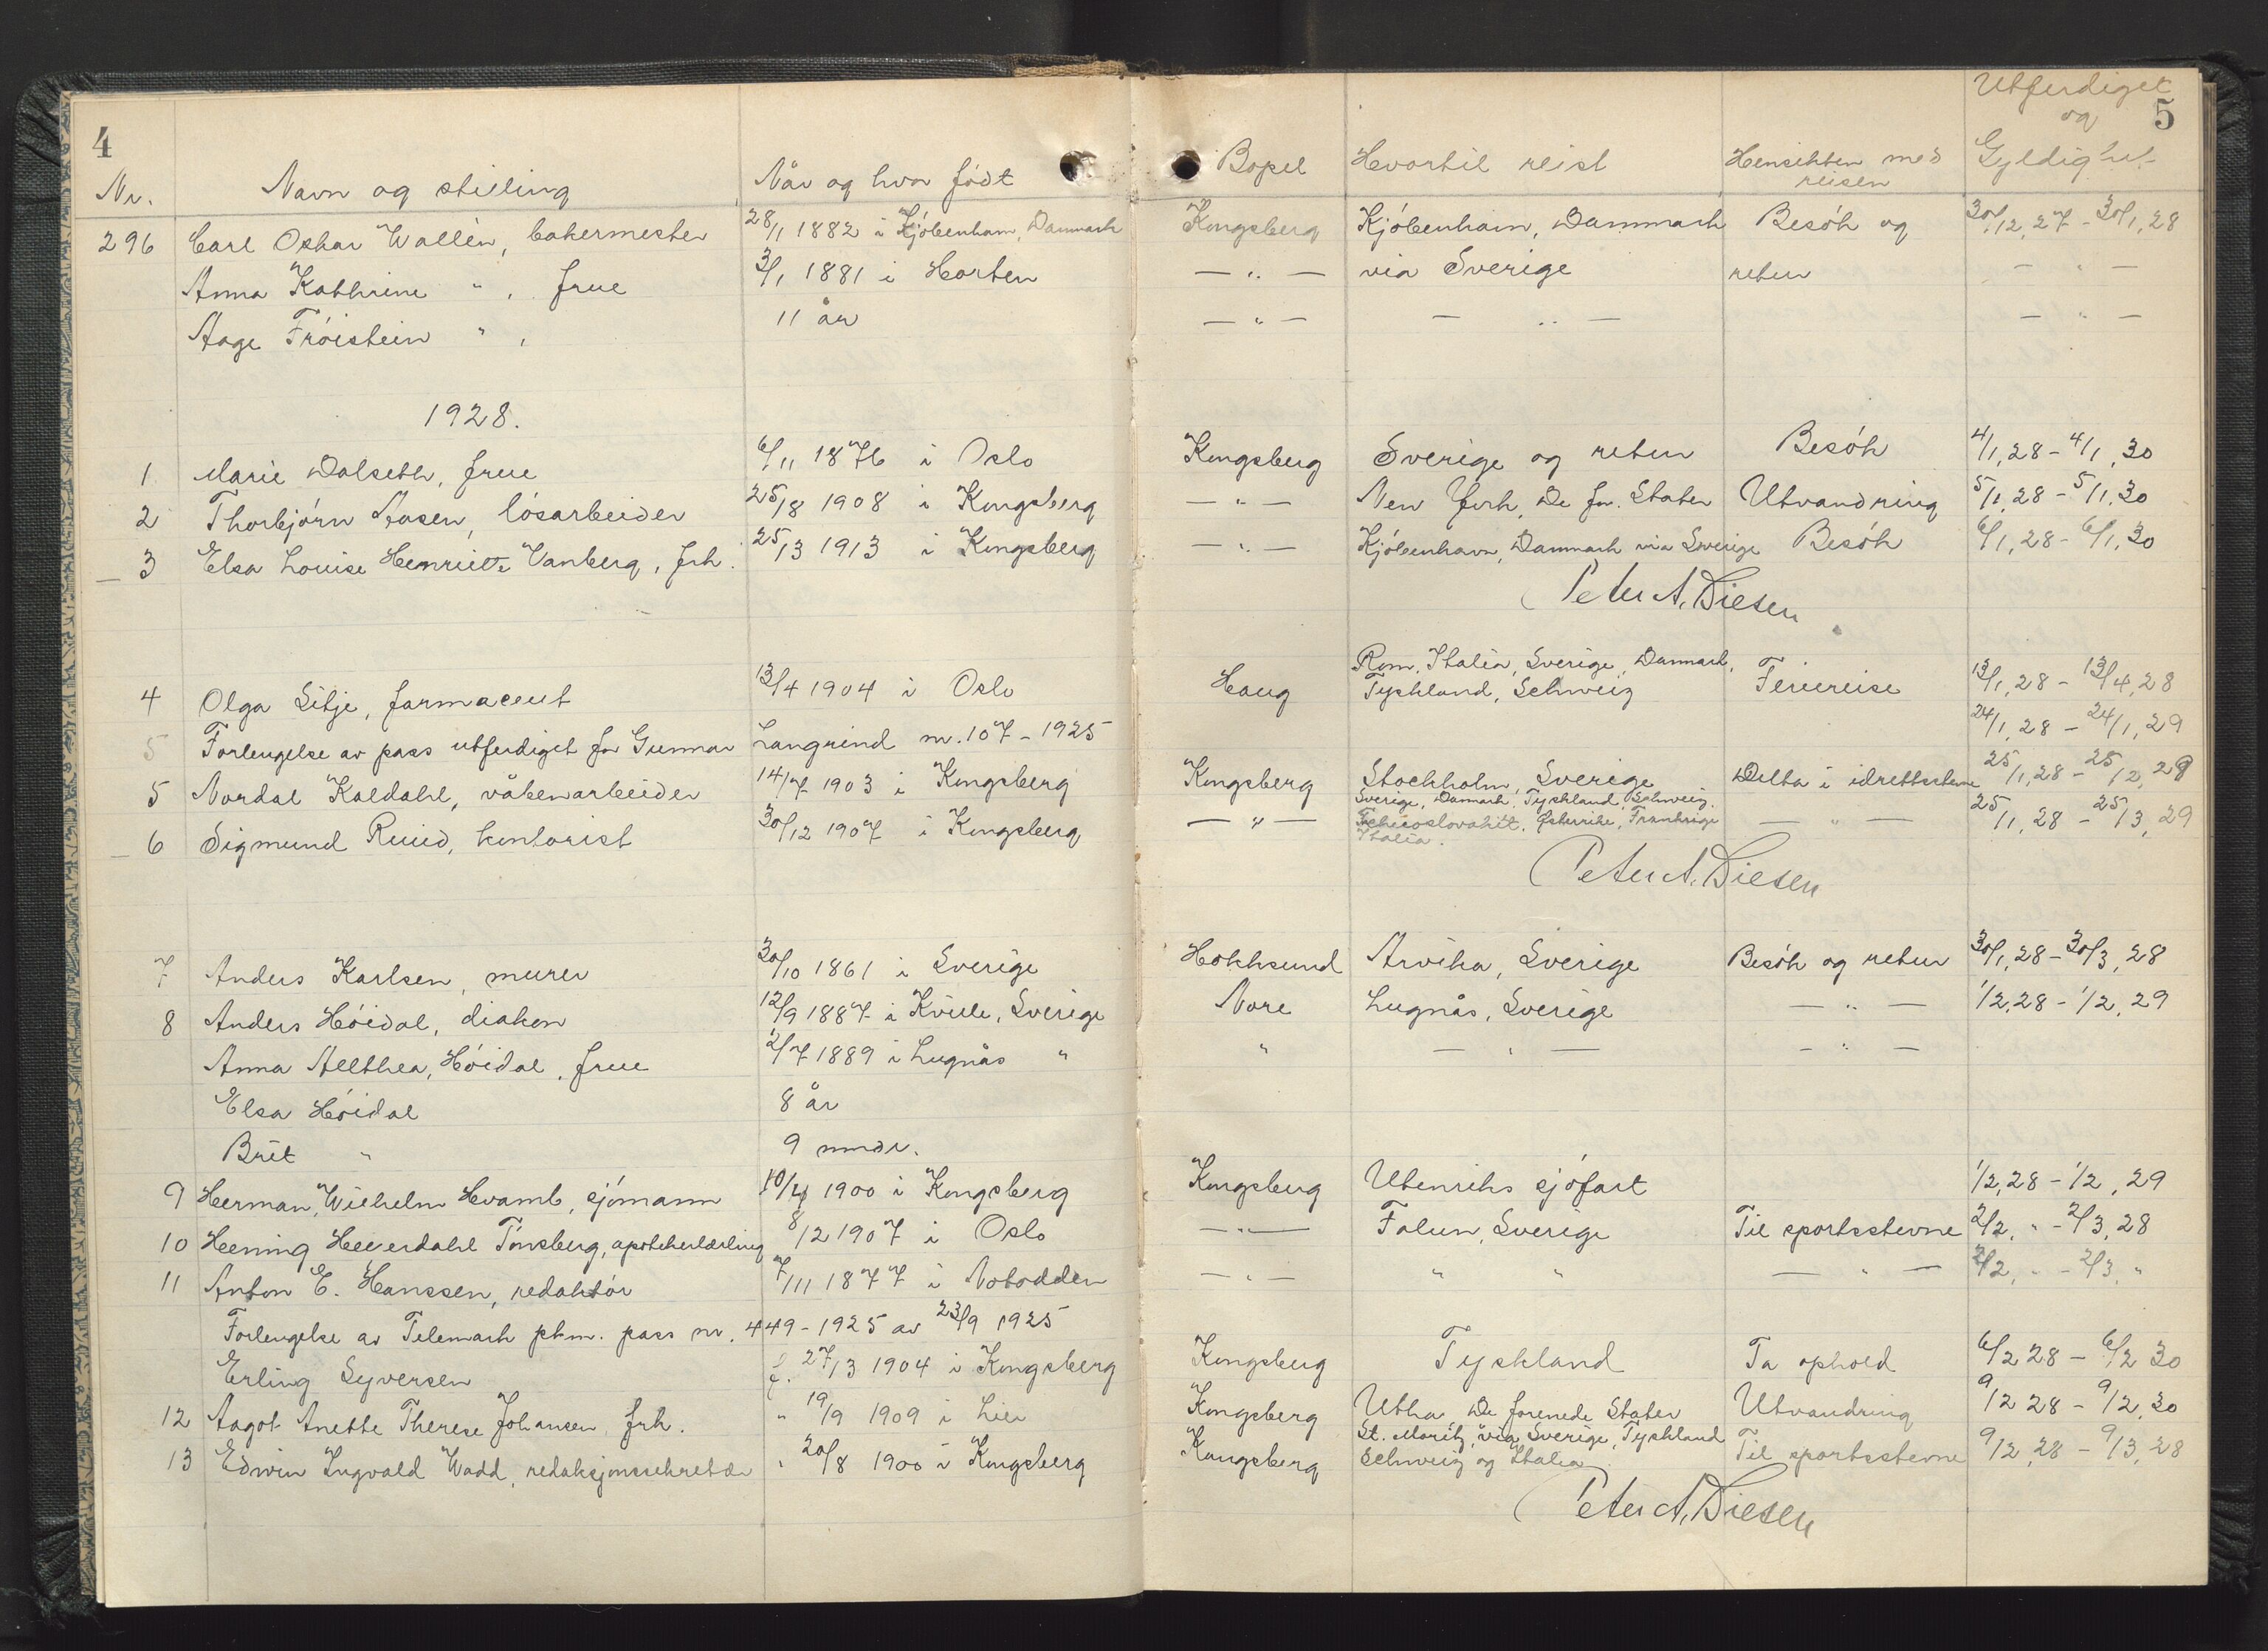 4
Nr. Navn og stilling Når og hvor født Bopel Hvortil reist Hensikten med reisen Utferdiget og Gyldighet 5
296 Carl Oskar Wallèn, bakermester 28/11 1882 i Kjøbenhavn, Danmark Kongsberg Kjøbenhavn, Danmark Besøk og 30/12,27 - 30/1,28
Anna Kathrine " , frue 3/1 1881 i Horten — " — via Sverige retur — " —
Aage Frøistein " , 11 år — " — — " — — " —
1928.
1 Marie Dalseth, frue 6/11 1876 i Oslo Kongsberg Sverige og retur Besøk 4/1,28 - 4/1,30
2 Thorbjørn Aasen, løsarbeider 25/8 1908 i Kongsberg — " — New York, De for. Stater Utvandring 5/1,28 - 5/1,30
3 Elsa Louise Henriette Vanberg, frk. 25/3 1913 i Kongsberg — " — Kjøbenhavn, Danmark via Sverige Besøk 6/1,28 - 6/1,30
Peter A. Diesen
Rom, Italia, Sverige, Danmark,
4 Olga Litje, farmaceut 13/4 1904 i Oslo Haug Tyskland, Schweiz Feriereise 13/1,28 - 13/4,28
5 Forlengelse av pass utferdiget for Gunnar Langrind nr. 107 - 1925 24/1,28 - 24/1,29
5 Nordal Kaldahl, våbenarbeider 14/7 1903 i Kongsberg Kongsberg Stockholm, Sverige Delta i idrettsstevne 25/1,28 - 25/2,28
Sverige, Danmark, Tyskland, Schweiz.
6 Sigmund Ruud, kontorist 30/12 1907 i Kongsberg — " — Tschecoslovakiet, Østerrike, Frankrige — " — 25/1,28 - 25/3,29
Italia.
Peter A. Diesen
7 Anders Karlsen, murer 30/10 1861 i Sverige Hokksund Arvika, Sverige Besøk og retur 30/1,28 - 30/3,28
8 Anders Høidal, diakon 12/9 1887 i Kville, Sverige Nore Lugnås, Sverige — " — 1/2,28 - 1/2,29
Anna Allthea, Høidal, frue 2/7 1889 i Lugnås " " — " — — " —
Elsa Høidal 8 år
Brit " 9 mndr.
9 Herman, Wilhelm Hvamb, sjømann 10/4 1900 i Kongsberg Kongsberg Utenriks sjøfart 1/2,28 - 1/2,29
10 Hening Heyerdahl Tønsberg, apotekerlærling 8/12 1907 i Oslo — " — Falun, Sverige Til sportsstevne 2/2, " - 2/3,28
11 Anton E. Hanssen, redaktør 7/11 1877 i Notodden — " — " " — " — 2/2, " - 2/3, "
Forlengelse av Telemark pkm. pass nr. 449 - 1925 av 23/9 1925
Erling Syversen f. 27/3 1904 i Kongsberg Kongsberg Tyskland Ta ophold 6/2 28 - 6/2 30
12 Aagot Anette Therese Johansen, frk. " 19/9 1909 i Lier Kongsberg Utha De forenede Stater Utvandring 9/2 28 - 9/2,30
St. Moritz, via Sverige, Tyskland
13 Edwin Ingvald Wadd, redaksjonssekretær " 20/8 1900 i Kongsberg Kongsberg Schweiz og Italia Til sportsstevne 9/2,28 - 9/3,28
Peter A. Diesen